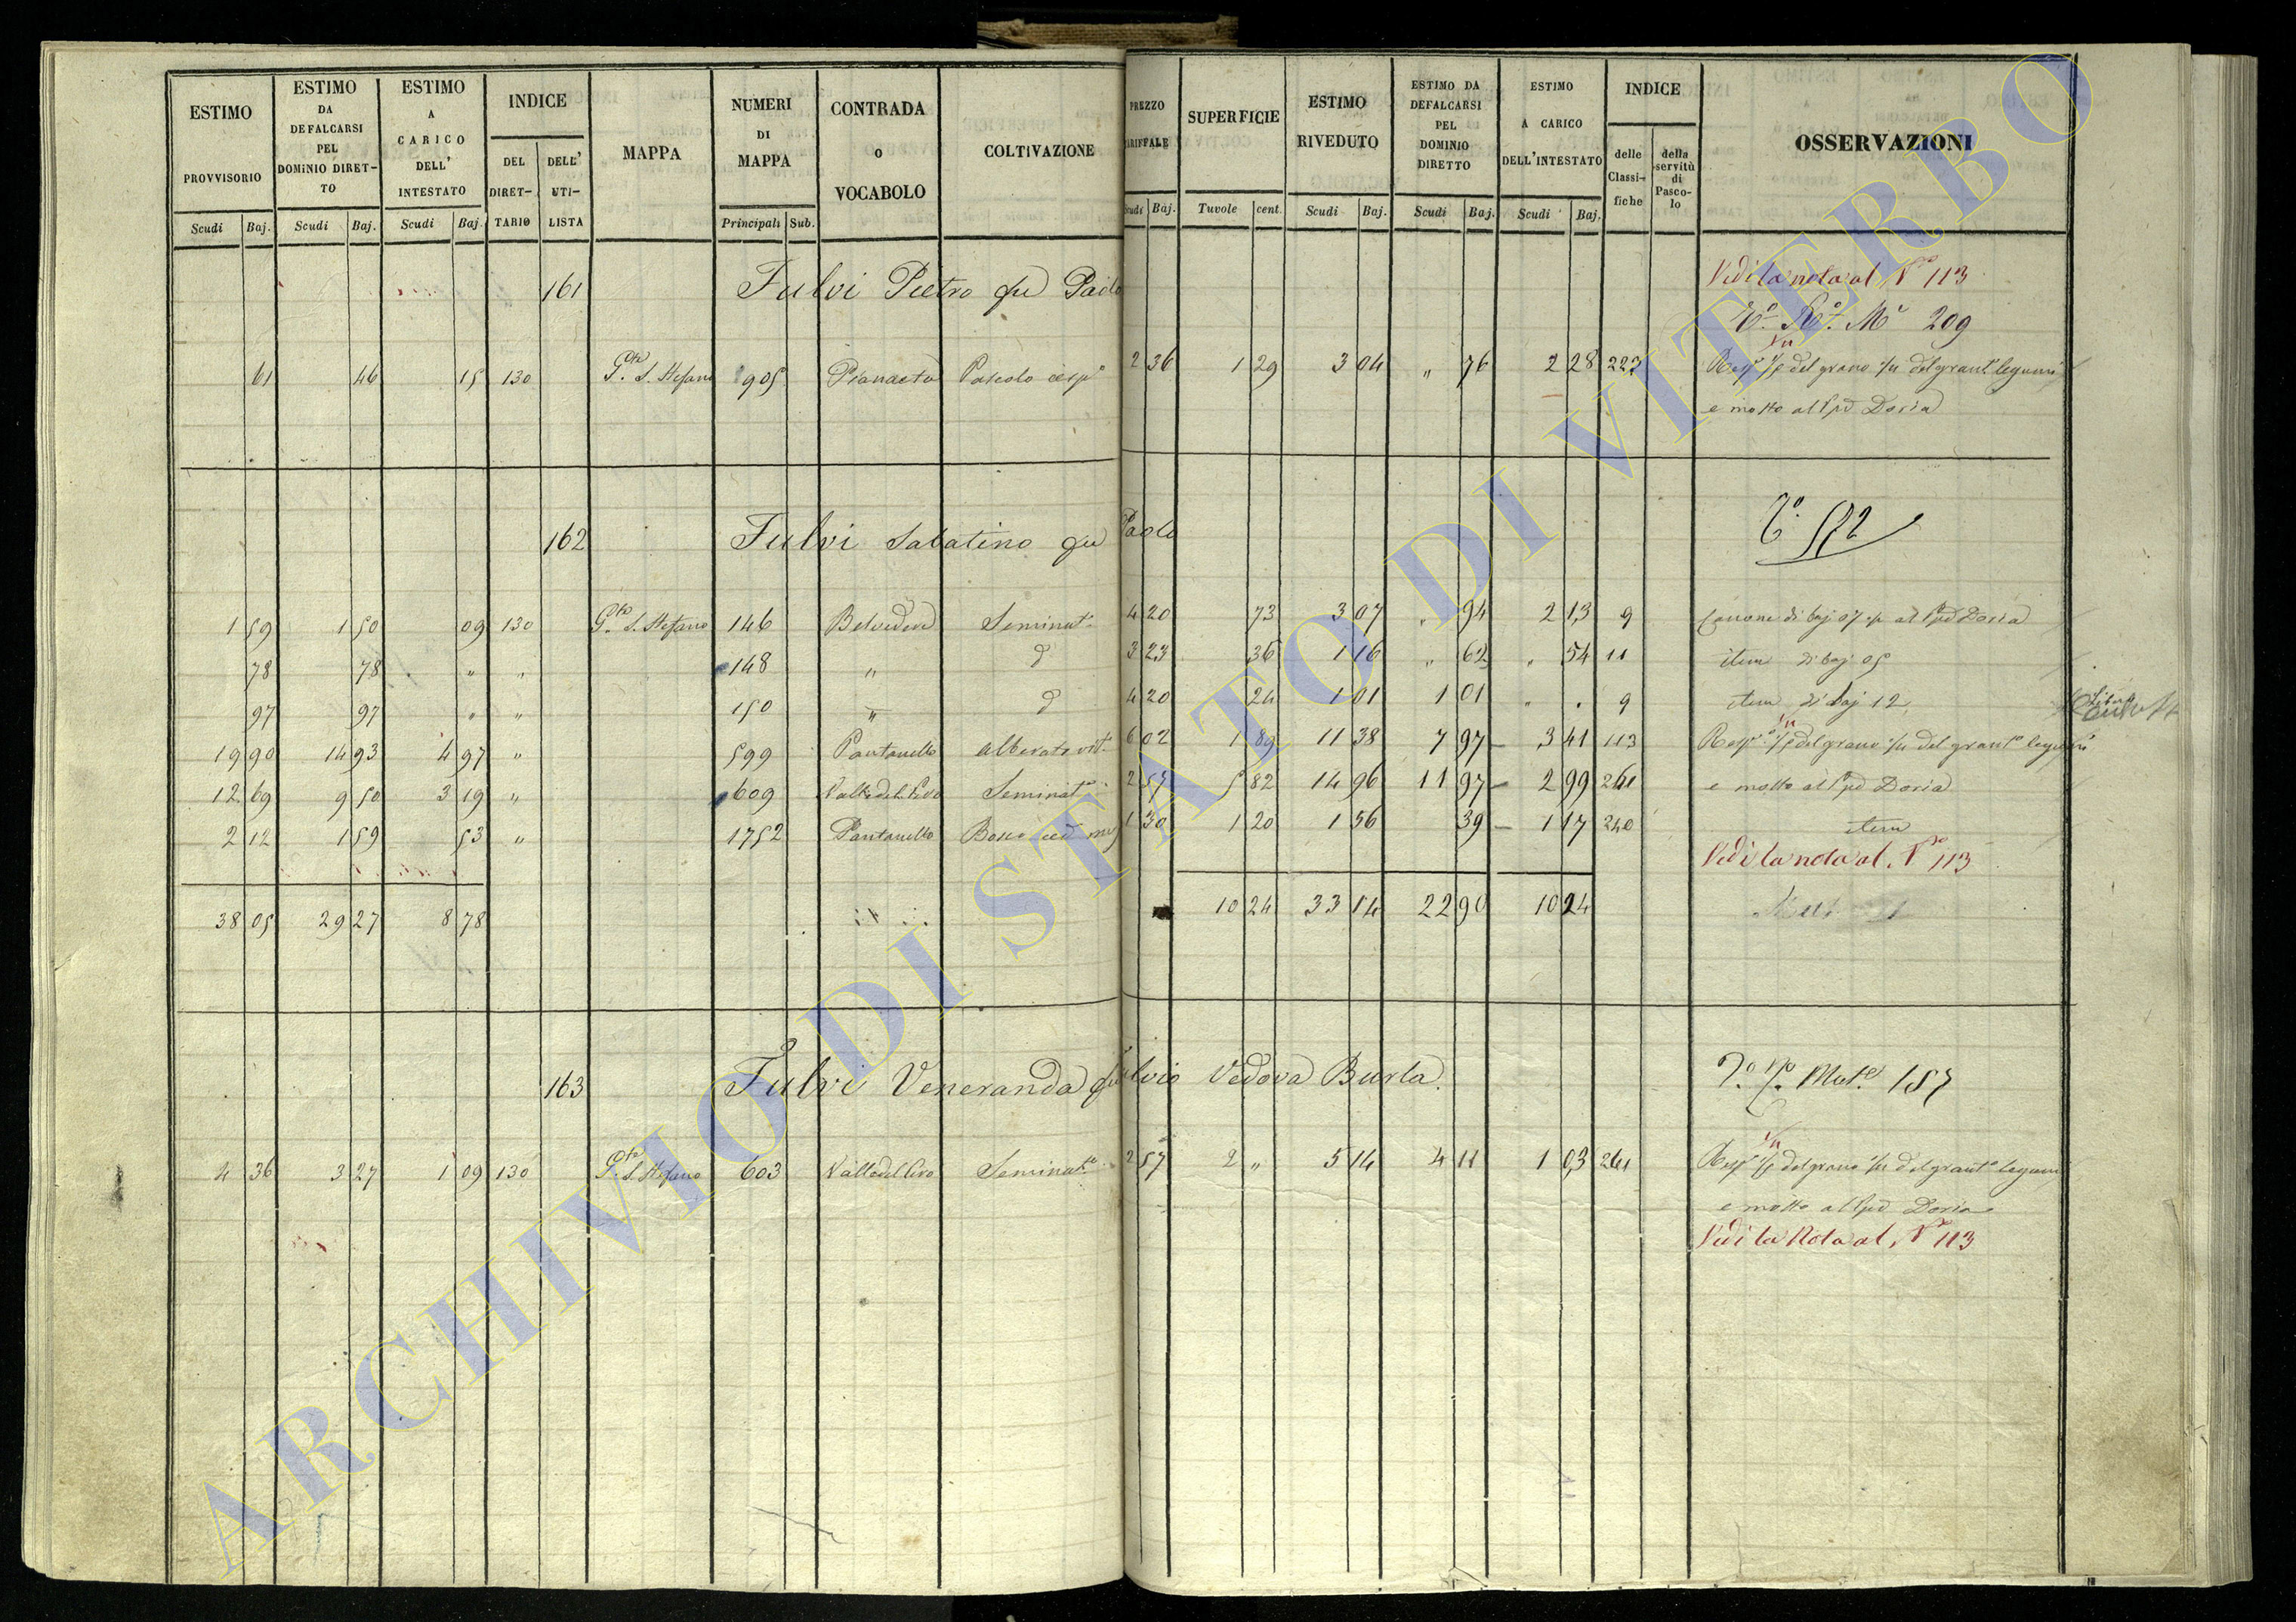 ESTIMO PROVVISORIO Scudi Baj.
ESTIMO DA DEFALCARSI PEL DOMINIO DIRETTO Scudi Baj.
ESTIMO A CARICO DELL' INTESTATO Scudi Baj.
INDICE DEL DIRETTARIO DELL' UTILISTA
MAPPA
NUMERI DI MAPPA Principali Sub.
CONTRADA O VOCABOLO
COLTIVAZIONE
PREZZO TARIFFALE Scudi Baj.
SUPERFICIE Tavole cent.
ESTIMO RIVEDUTO Scudi Baj.
ESTIMO DA DEFALCARSI PEL DOMINIO DIRETTO Scudi Baj.
ESTIMO A CARICO DELL'INTESTATO Scudi Baj.
INDICE delle Classifiche della servitù di Pascolo
OSSERVAZIONI
161 Fulvi Pietro qu Paolo
Vedi la nota al N° 113
209
61 46 15 130 S. Stefano 905 Pianaeta Pascolo cesp° 2 36 1 29 3 04 " 76 2 28 223 del grano del grant° legumi
e mosto al Doria
162 Fulvi Sabatino qu Paolo
1 59 1 50 09 130 S. Stefano 146 Belvedere Seminat° 4 20 73 3 07 " 94 2 13 9 Canone di baj 07 al Doria
78 78 " " 148 " d° 3 23 36 1 16 " 62 " 54 11 item di baj 05
97 97 " " 150 " d° 4 20 24 1 01 1 01 " " 9 item di baj 12
19 90 14 93 4 97 " 599 Pantanello Alberato vit° 6 02 1 89 11 38 7 97 3 41 113 del grano del grant° legumi
12 69 9 50 3 19 " 609 Valle del Pero Seminat° 2 57 5 82 14 96 11 97 2 99 261 e mosto al Doria
2 12 1 59 53 " 1752 Pantanello Bosco ced 1 30 1 20 1 56 39 1 17 240 item
Vedi la nota al N° 113
38 05 29 27 8 78 10 24 33 14 22 90 10 24
163 Fulvi Veneranda qu Fulvio Vedova Burla.
157
4 36 3 27 1 09 130 S. Stefano 603 Valle del Pero Seminat° 2 57 2 " 5 14 4 11 1 03 261 del grano del grant° legumi
e mosto al Doria
Vedi la Nota al N° 113
ARCHIVIO DI STATO DI VITERBO